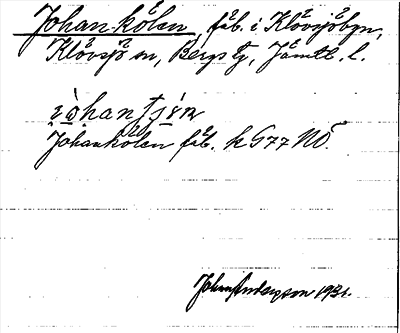 Johankölen, fäb. i Klövsjöbyn,
Klövsjö sn, Bergs tg, Jämtl. l.
Johankölen fäb. k G77 NÖ.
Johan Andersson